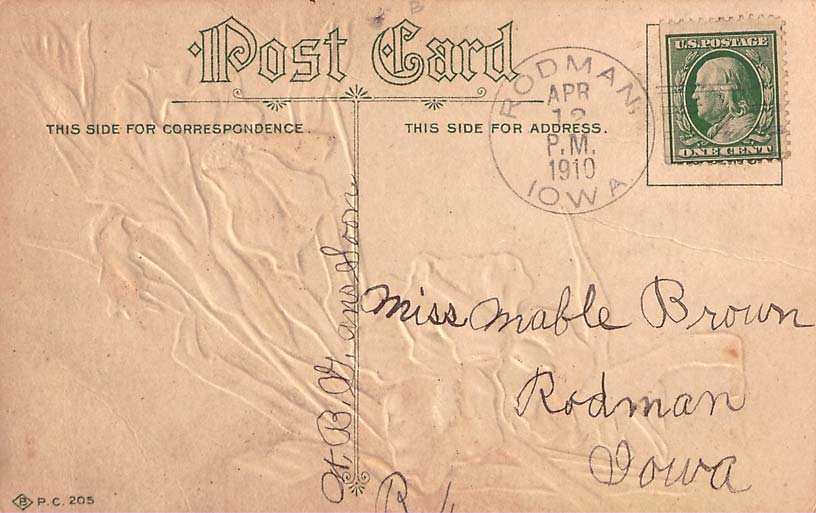 Post Card
THIS SIDE FOR CORRESPONDENCE.
THIS SIDE FOR ADDRESS.
RODMAN,
APR
12
P.M.
1910
IOWA
U.S. POSTAGE
ONE CENT
ans soon
Miss Mable Brown
Rodman
Iowa
R
B P.C. 205